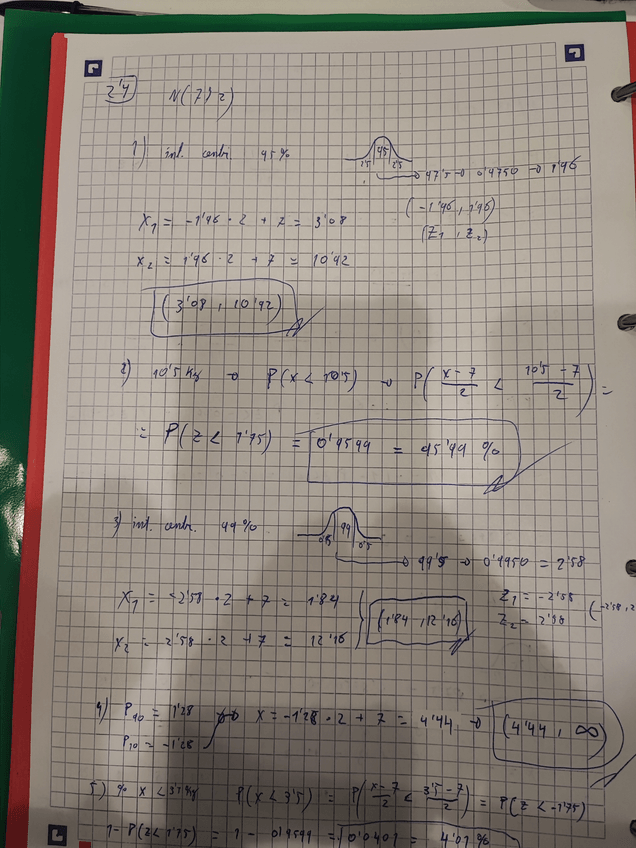 2'4
N(7,2)
1) int. centr. 95%
95
2'5 2'5
97'5 → 0'9750 → 1'96
(-1'96, 1'96)
(Z₁, Z₂)
X₁ = -1'96 · 2 + 7 = 3'08
X₂ = 1'96 · 2 + 7 = 10'92
(3'08, 10'92)
2) 10'5 Kg → P(X < 10'5) → P(x - 7 / 2 < 10'5 - 7 / 2) =
= P(Z < 1'75) = 0'9599 = 95'99 %
3) int. centr. 99%
99
0'5 0'5
99'5 → 0'9950 = 2'58
X₁ = -2'58 · 2 + 7 = 1'84
X₂ = 2'58 · 2 + 7 = 12'16
(1'84, 12'16)
Z₁ = -2'58
Z₂ = 2'58
(-2'58, 2
4) P₉₀ = 1'28
P₁₀ = -1'28
X = -1'28 · 2 + 7 = 4'44 → (4'44, ∞)
5) % X < 3'5 Kg P(X < 3'5) = P(x - 7 / 2 < 3'5 - 7 / 2) = P(Z < -1'75)
1 - P(Z < 1'75) = 1 - 0'9599 = 0'0401 = 4'01 %